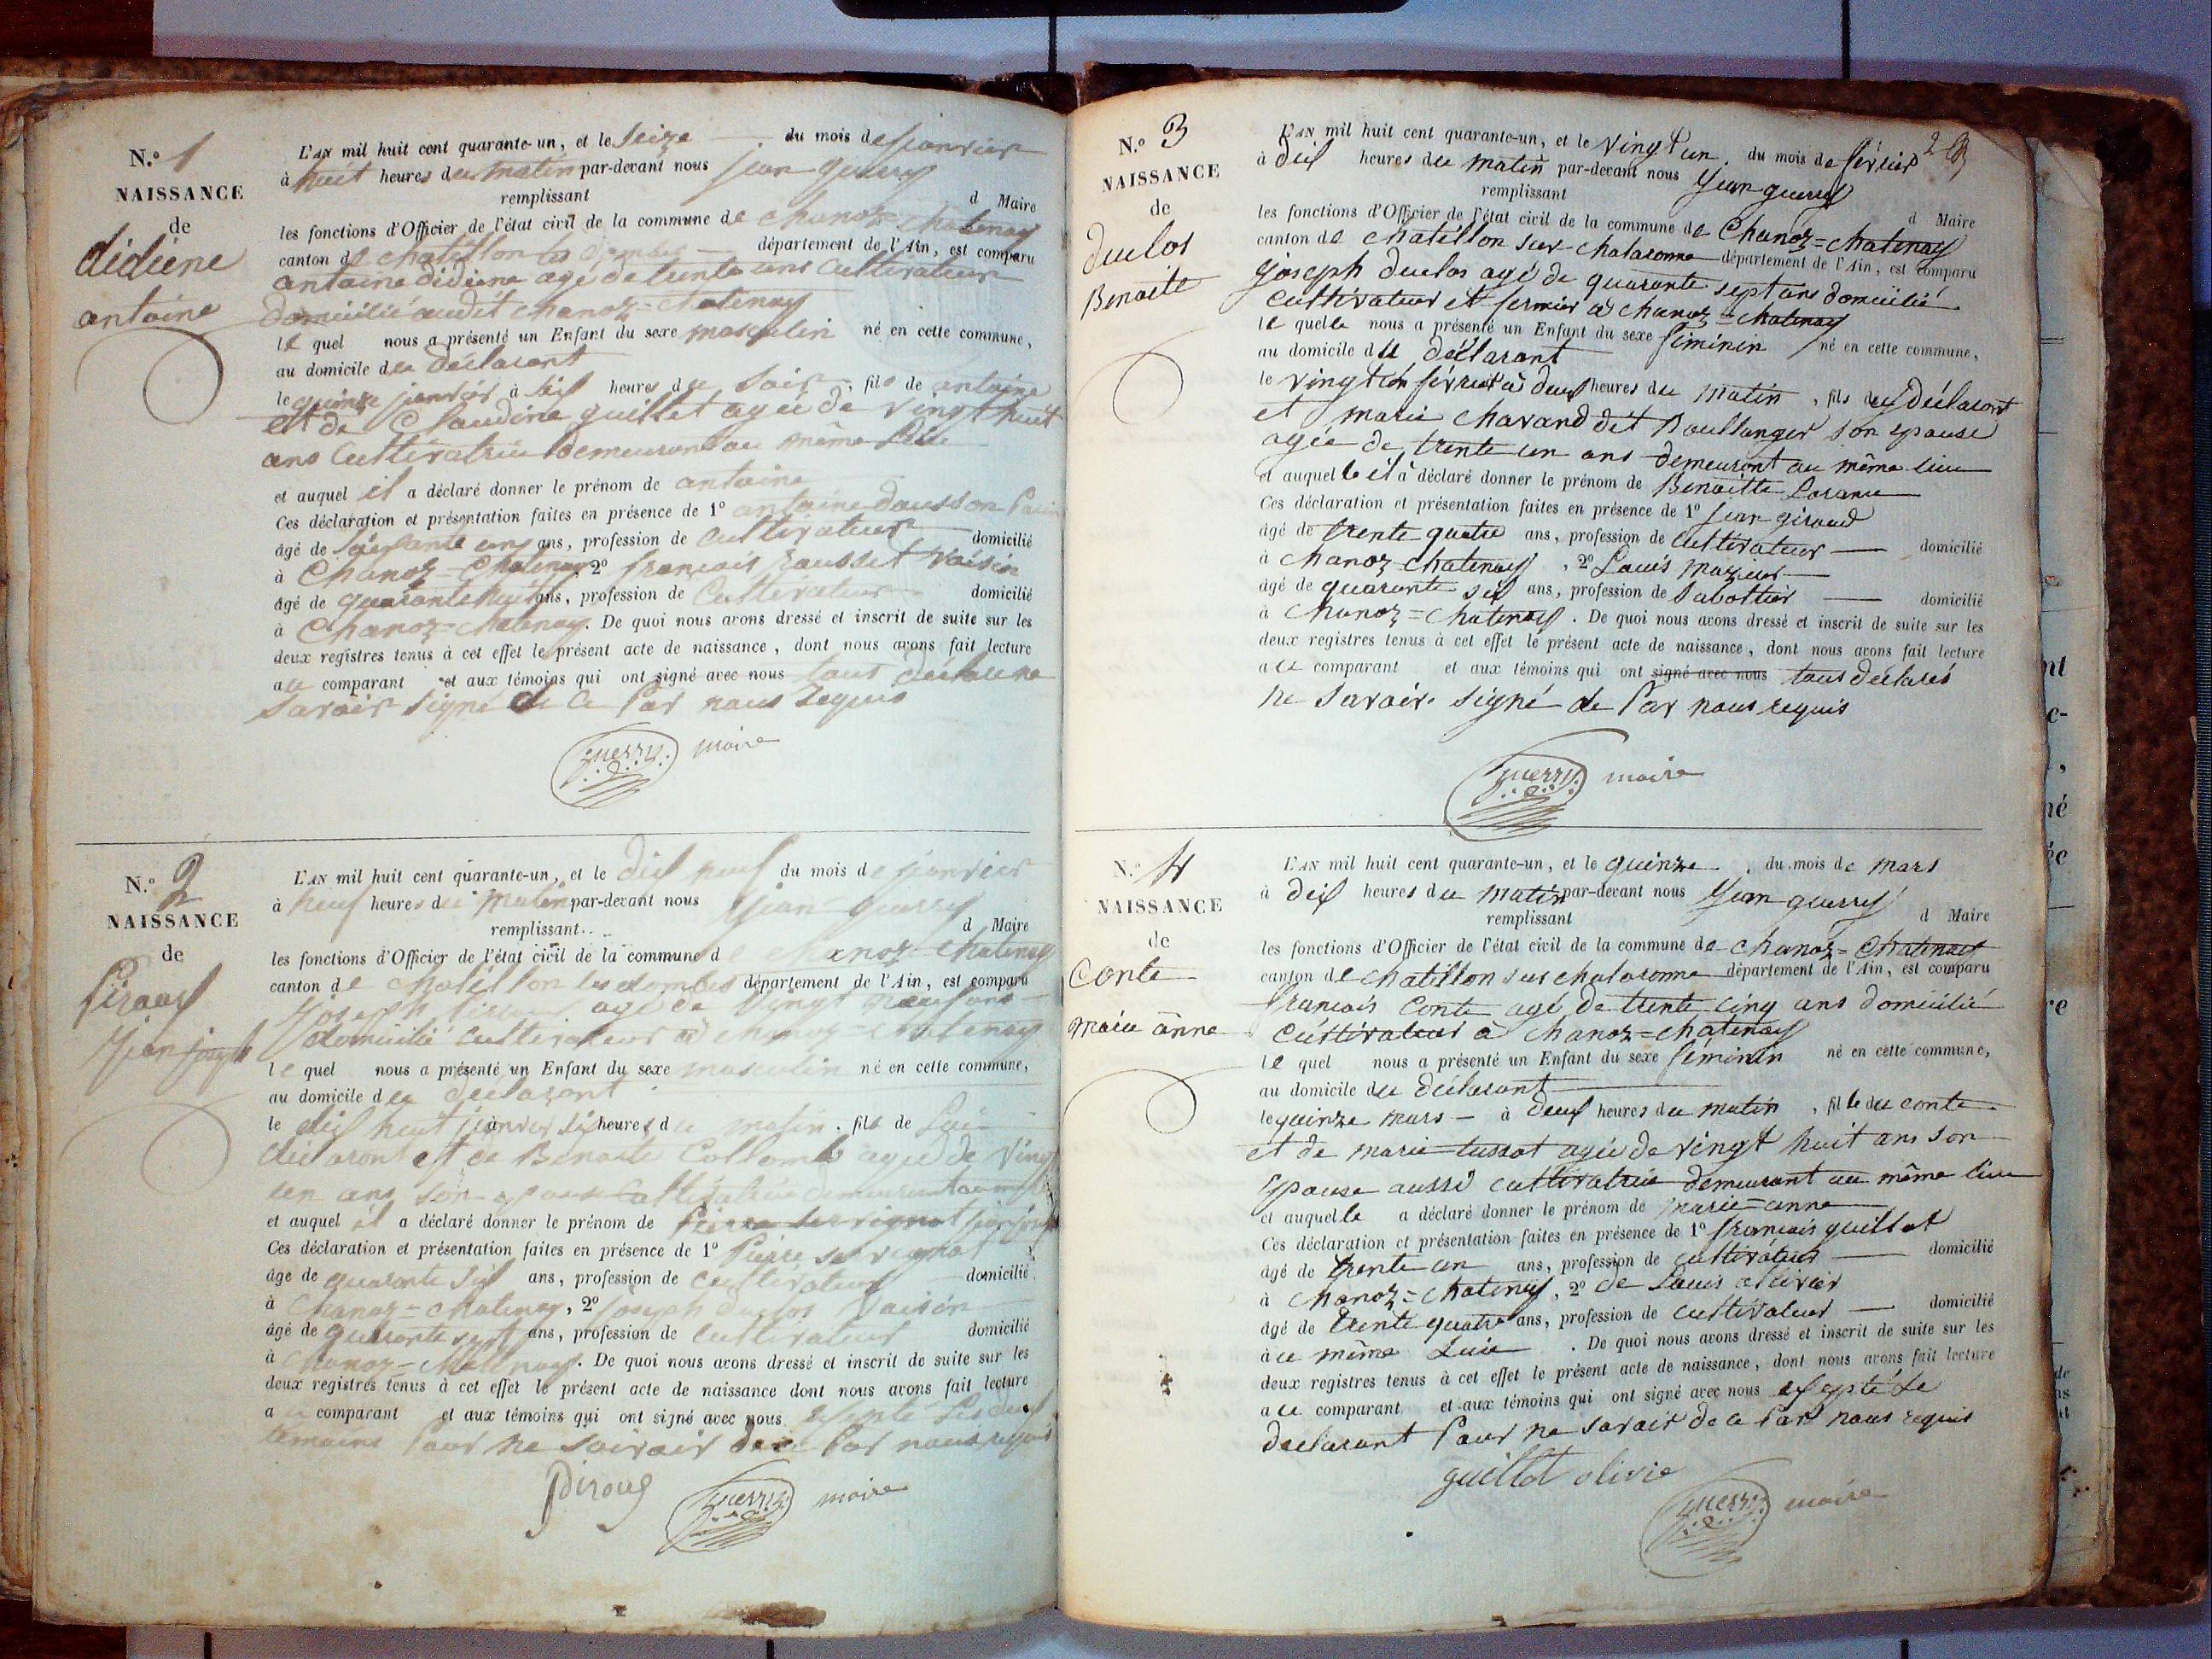 N.º 1
NAISSANCE
de
didiène
antoine
L'AN mil huit cent quarante-un, et le seize du mois de janvier
à huit heures du matin par-devant nous jean guerry
remplissant d Maire
les fonctions d'Officier de l'état civil de la commune de chanoz=chatenay
canton de chatillon les dombes département de l'Ain, est comparu
antoine didiène agé de trente ans cultivateur
domicilié audit chanoz=chatenay
le quel nous a présenté un Enfant du sexe masculin né en cette commune,
au domicile du déclarant
le quinze janvier à six heures du soir, fils de antoine
et de Claudine guillet agée de vingt huit
ans cultivatrice demeurant au même lieu
et auquel il a déclaré donner le prénom de antoine
Ces déclaration et présentation faites en présence de 1º antoine
âgé de soixante ans, profession de cultivateur domicilié
à Chanoz=Chatenay 2º françois rousset voisin
âgé de quarante huit ans, profession de Cultivateur domicilié
à Chanoz=chatenay. De quoi nous avons dressé et inscrit de suite sur les
deux registres tenus à cet effet le présent acte de naissance, dont nous avons fait lecture
au comparant et aux témoins qui ont signé avec nous tous déclaré ne
savoir signé de ce Par nous requis
guerry maire
N.º 2
NAISSANCE
de
Piroud
jean joseph
L'AN mil huit cent quarante-un, et le dix neuf du mois de janvier
à neuf heures du matin par-devant nous jean guerry
remplissant d Maire
les fonctions d'Officier de l'état civil de la commune de chanoz=chatenay
canton de chatillon les dombes département de l'Ain, est comparu
joseph Piroud agé de vingt neuf ans
domicilié cultivateur à chanoz=chatenay
le quel nous a présenté un Enfant du sexe masculin né en cette commune,
au domicile du déclarant
le dix huit janvier six heures du matin, fils de
déclarant et de Benoite Collomb agée de vingt
un ans son epouse cultivatrice demeurant au
et auquel il a déclaré donner le prénom de jean joseph
Ces déclaration et présentation faites en présence de 1º Pierre servignat
âgé de quarante six ans, profession de cultivateur domicilié
à Chanoz=chatenay, 2º joseph duclos voisin
âgé de quarante sept ans, profession de cultivateur domicilié
à Chanoz=chatenay. De quoi nous avons dressé et inscrit de suite sur les
deux registres tenus à cet effet le présent acte de naissance dont nous avons fait lecture
au comparant et aux témoins qui ont signé avec nous les deux
témoins Pour ne savoir de ce Par nous requis
Piroud guerry maire
2
N.º 3
NAISSANCE
de
duclos
Benoite
L'AN mil huit cent quarante-un, et le vingt un du mois de février
à dix heures du matin par-devant nous jean guerry
remplissant d Maire
les fonctions d'Officier de l'état civil de la commune de Chanoz=chatenay
canton de chatillon sur chalaronne département de l'Ain, est comparu
joseph duclos agé de quarante sept ans domicilié
cultivateur et fermier à chanoz=chatenay
le quelle nous a présenté un Enfant du sexe féminin né en cette commune,
au domicile du déclarant
le vingt un février à deux heures du matin, fils du déclarant
et marie chavand dit Boullanger son epouse
agée de trente un ans demeurant au même lieu
et auquelle il à déclaré donner le prénom de Benoitte
Ces déclaration et présentation faites en présence de 1º jean giroud
âgé de trente quatre ans, profession de cultivateur domicilié
à chanoz chatenay, 2º Louis mazuir
âgé de quarante six ans, profession de sabottier domicilié
à Chanoz=chatenay. De quoi nous avons dressé et inscrit de suite sur les
deux registres tenus à cet effet le présent acte de naissance, dont nous avons fait lecture
au comparant et aux témoins qui ont signé avec nous tous déclarés
ne savoir signé de Par nous requis
guerry maire
N.º 4
NAISSANCE
de
Conte
marie anne
L'AN mil huit cent quarante-un, et le quinze du mois de mars
à dix heures du matin par-devant nous jean guerry
remplissant d Maire
les fonctions d'Officier de l'état civil de la commune de chanoz=Chatenay
canton de chatillon sur chalaronne département de l'Ain, est comparu
francois Conte agé de trente cinq ans domicilié
cultivateur à chanoz=chatenay
le quel nous a présenté un Enfant du sexe féminin né en cette commune,
au domicile du déclarant
le quinze mars - à deux heures du matin, fille du conte
et de marie tussot agée de vingt huit ans son
epouse aussi cultivatrice demeurant au même lieu
et auquelle a déclaré donner le prénom de marie=anne
Ces déclaration et présentation faites en présence de 1º francois guillot
âgé de trente un ans, profession de cultivateur domicilié
à chanoz=chatenay, 2º de Louis ollivier
âgé de trente quatre ans, profession de cultivateur domicilié
à ce même Lieu. De quoi nous avons dressé et inscrit de suite sur les
deux registres tenus à cet effet le présent acte de naissance, dont nous avons fait lecture
au comparant et aux témoins qui ont signé avec nous exepté Le
declarant Pour ne savoir de ce Par nous requis
guillot olivie
guerry maire